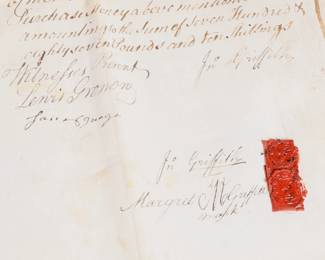 Purchase Money above mentione
amounting to the Sum of Seven Hundred &
eighty seven Pounds and ten Shillings
Witnesses Present
Jn Griffith
Lewis Gronow
Jn Griffith
Margret M Griffith
mark